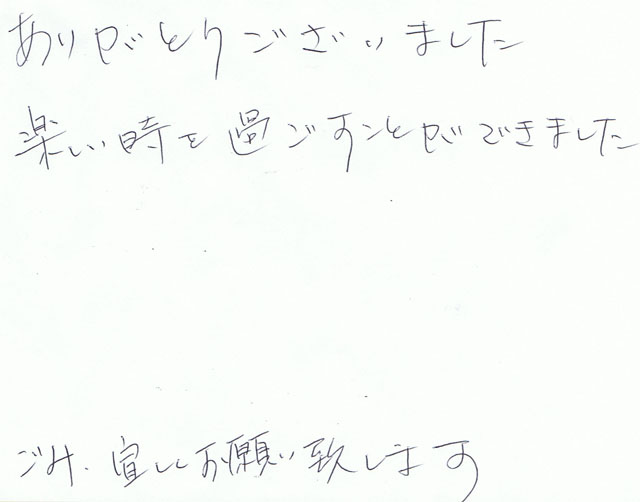 ありがとうございました
楽しい時を過ごすことができました
ごみ、宜しくお願い致します